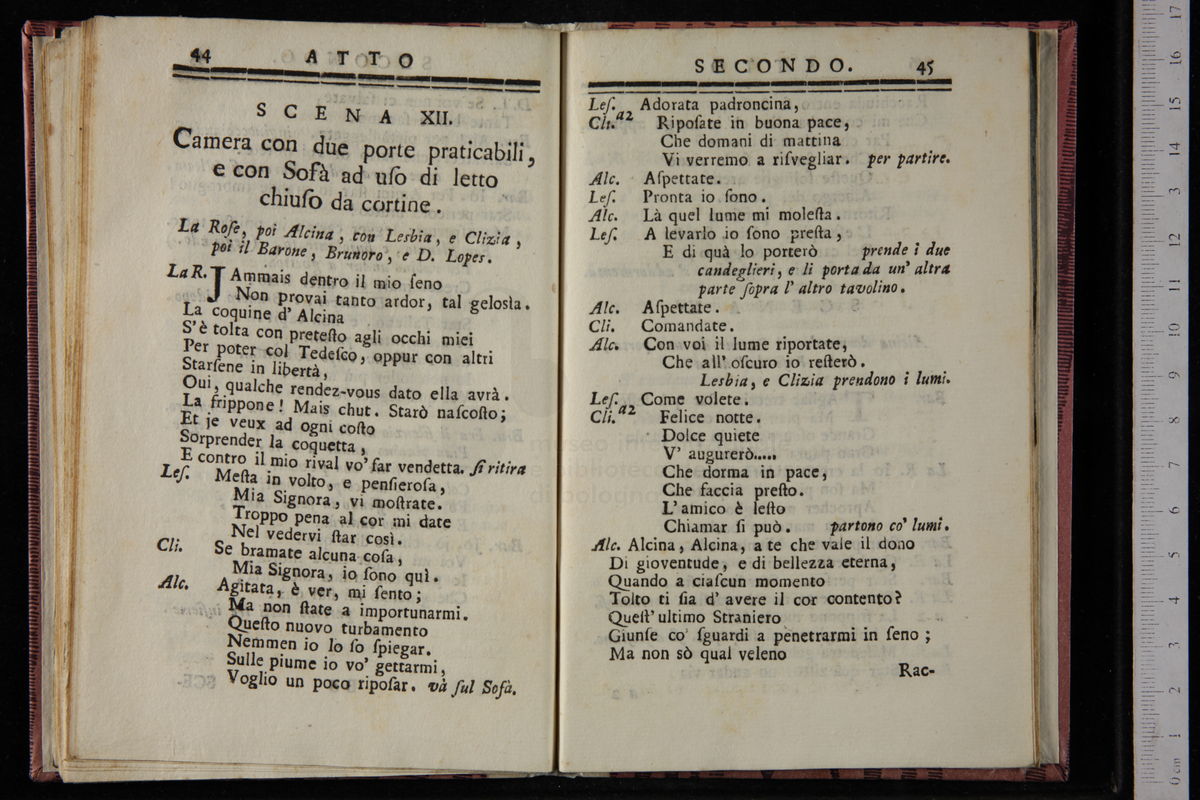 44 ATTO
SCENA XII.
Camera con due porte praticabili,
e con Sofà ad uſo di letto
chiuſo da cortine.
La Roſe, poi Alcina, con Lesbia, e Clizia,
poi il Barone, Brunoro, e D. Lopes.
La R. JAmmais dentro il mio ſeno
Non provai tanto ardor, tal gelosìa.
La coquine d' Alcina
S'è tolta con preteſto agli occhi miei
Per poter col Tedeſco, oppur con altri
Starſene in libertà,
Oui, qualche rendez-vous dato ella avrà.
La frippone! Mais chut. Starò naſcoſto;
Et je veux ad ogni coſto
Sorprender la coquetta,
E contro il mio rival vo' far vendetta. ſi ritira
Leſ. Meſta in volto, e penſieroſa,
Mia Signora, vi moſtrate.
Troppo pena al cor mi date
Nel vedervi ſtar così.
Cli. Se bramate alcuna coſa,
Mia Signora, io ſono quì.
Alc. Agitata, è ver, mi ſento;
Ma non ſtate a importunarmi.
Queſto nuovo turbamento
Nemmen io lo ſo ſpiegar.
Sulle piume io vo' gettarmi,
Voglio un poco ripoſar. và ſul Sofà.
SECONDO. 45
Leſ. Adorata padroncina,
Cli. a2 Ripoſate in buona pace,
Che domani di mattina
Vi verremo a riſvegliar. per partire.
Alc. Aſpettate.
Leſ. Pronta io ſono.
Alc. Là quel lume mi moleſta.
Leſ. A levarlo io ſono preſta,
E di quà lo porterò prende i due
candeglieri, e li porta da un' altra
parte ſopra l' altro tavolino.
Alc. Aſpettate.
Cli. Comandate.
Alc. Con voi il lume riportate,
Che all' oſcuro io reſterò.
Lesbia, e Clizia prendono i lumi.
Leſ. Come volete.
Cli. a2 Felice notte.
Dolce quiete
V' augurerò.....
Che dorma in pace,
Che faccia preſto.
L' amico è leſto
Chiamar ſi può. partono co' lumi.
Alc. Alcina, Alcina, a te che vale il dono
Di gioventude, e di bellezza eterna,
Quando a ciaſcun momento
Tolto ti ſia d' avere il cor contento?
Queſt' ultimo Straniero
Giunſe co' ſguardi a penetrarmi in ſeno;
Ma non sò qual veleno
Rac-